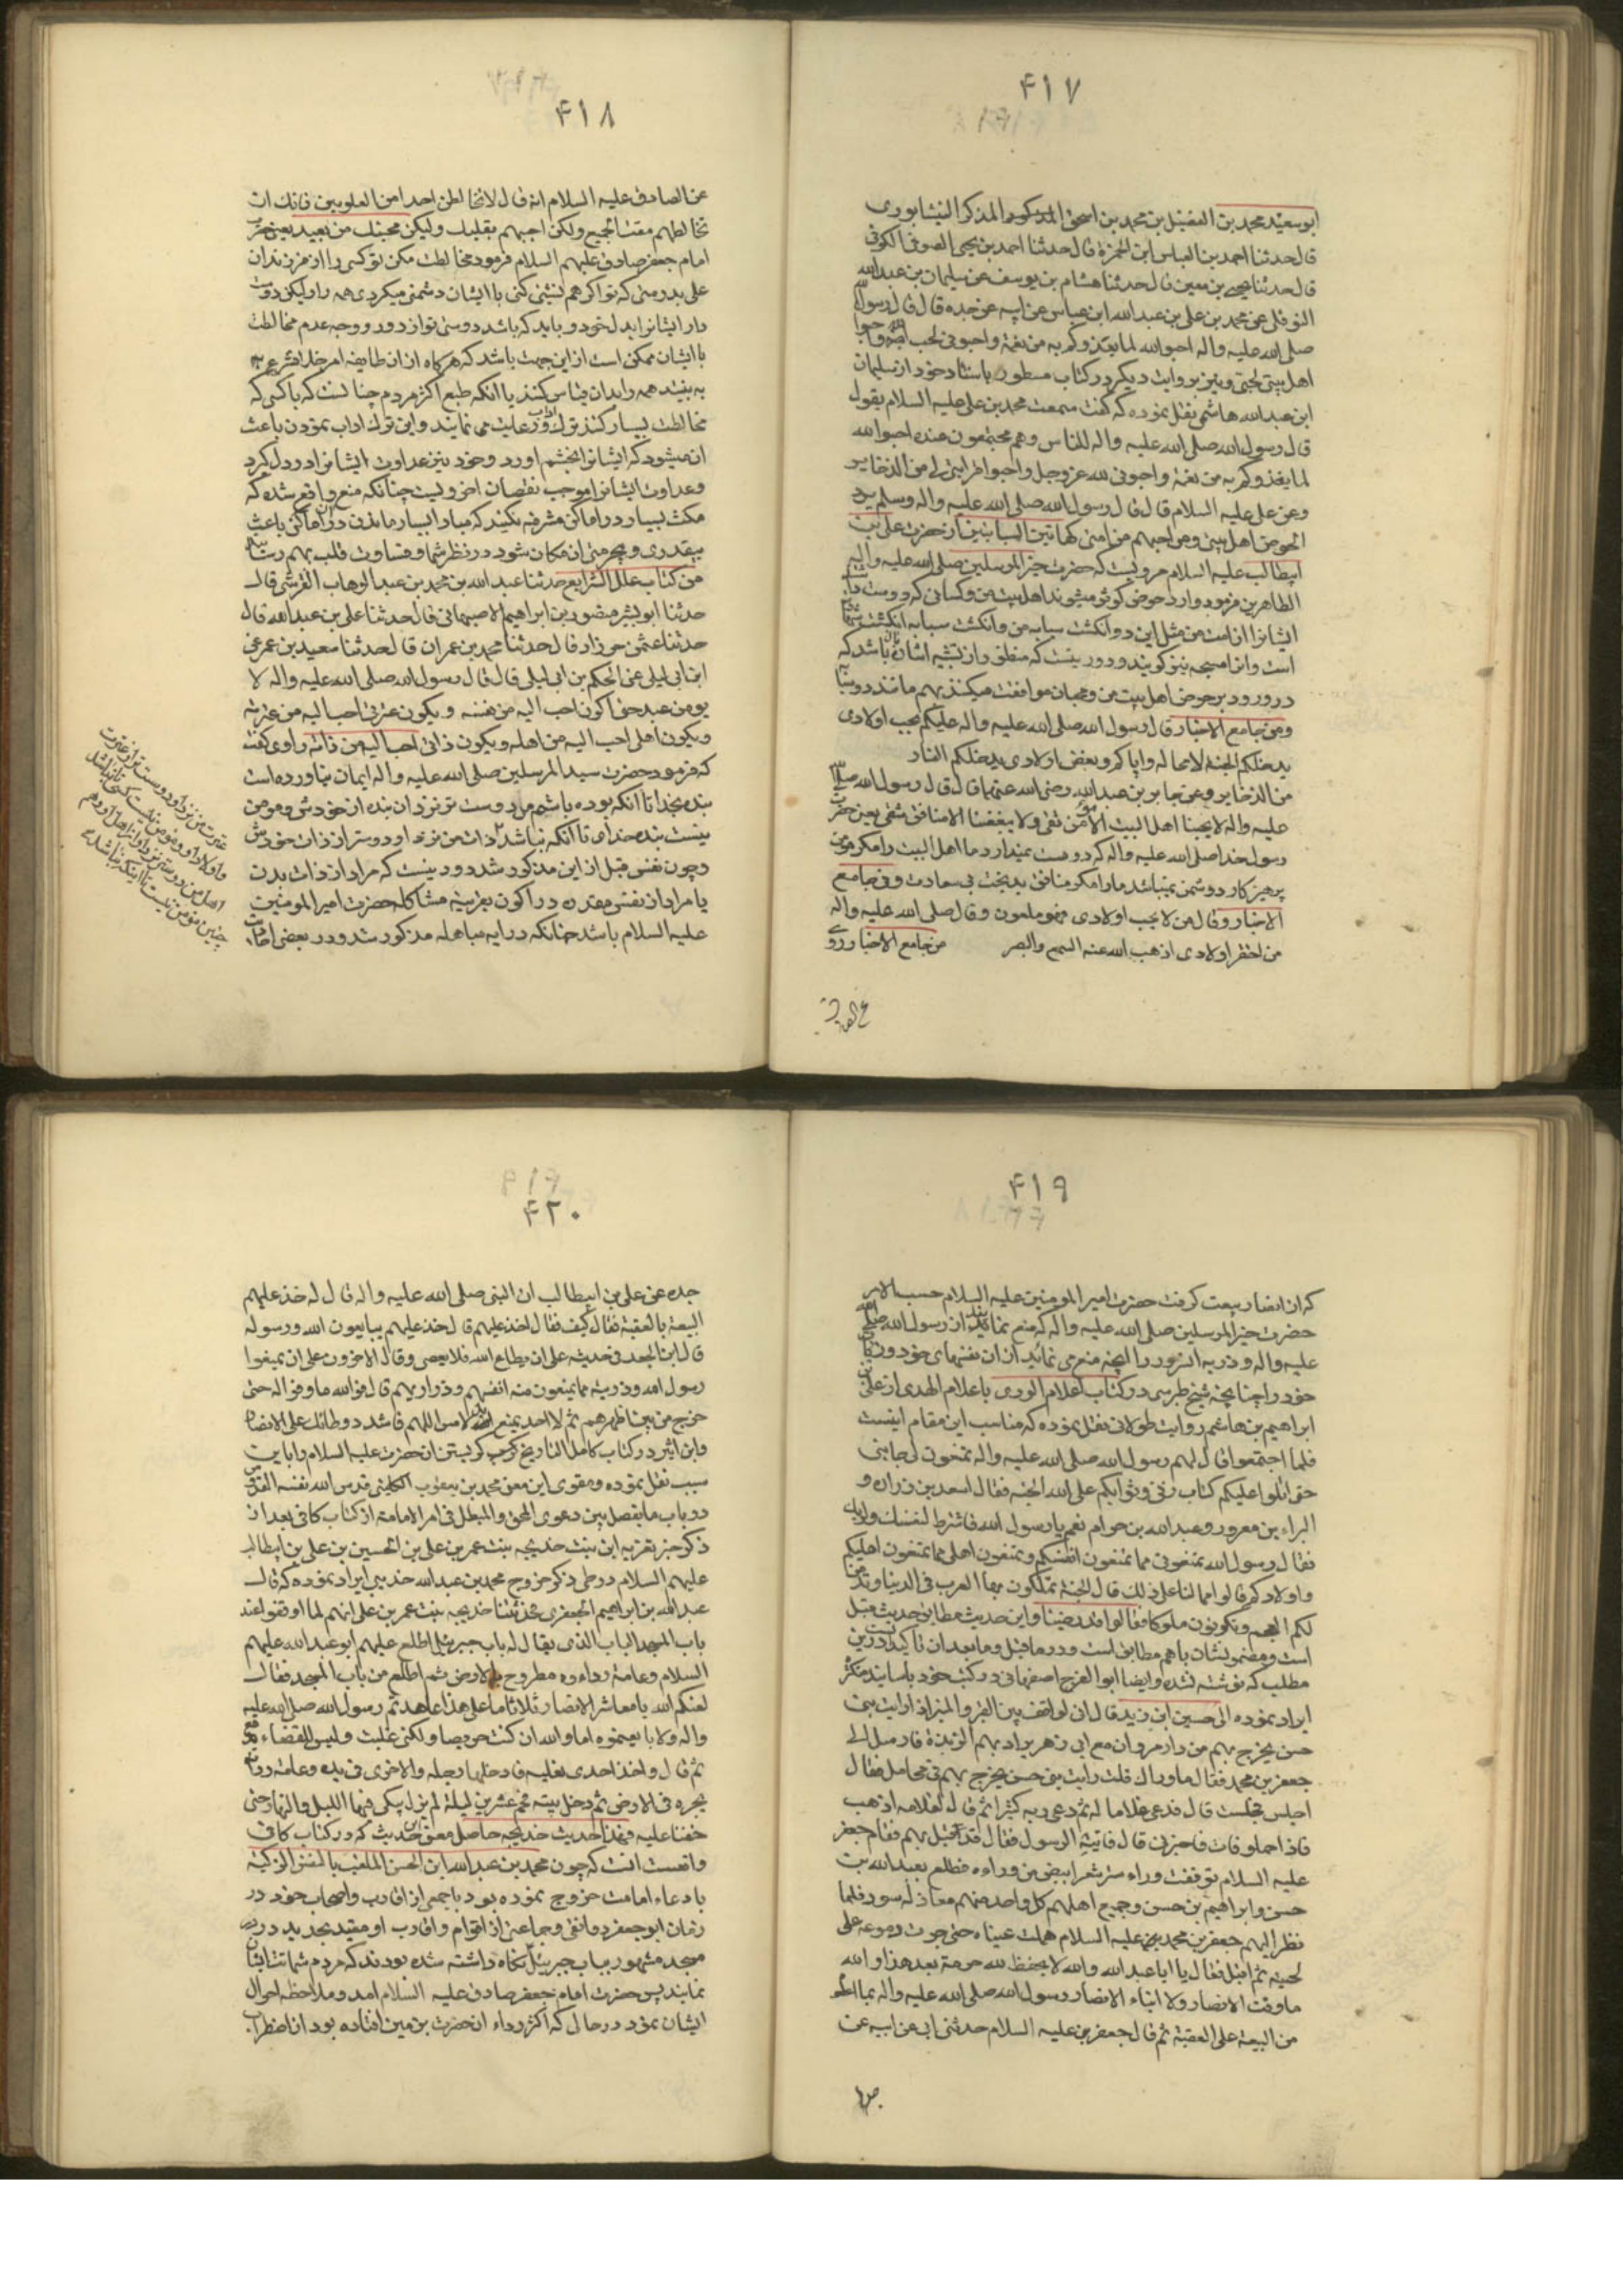 ۴۱۷
ابوسعید محمد بن الفضل بن محمد بن اسحق المذکر النیشابوری
قال حدثنا احمد بن العباس ابن الحمزة قال حدثنا احمد بن یحیی الصوفی الکوفی
قال حدثنا یحیی بن معین قال حدثنا هشام بن یوسف عن سلیمان بن عبدالله
النوفلی عن محمد بن علی بن عبدالله ابن عباس عن ابیه عن جده قال قال رسول الله
صلی الله علیه واله احبوا الله لما یغذوکم به من نعمة واحبونی لحب الله واحبوا
اهل بیتی لحبی ونیز بروایت دیکر در کتاب مسطور باسناد خود از سلیمان
ابن عبدالله هاشمی نقل نموده که کفت سمعت محمد بن علی علیه السلام یقول
قال رسول الله صلی الله علیه واله للناس وهم مجتمعون عنده احبوا الله
لما یغذوکم به من نعمة واحبونی لله عز وجل واحبوا قرابتی لی من الذخایر
وعن علی علیه السلام قال قال رسول الله صلی الله علیه واله وسلم یرد
الحوض اهل بیتی ومن احبهم من امتی کهاتین السبابتین از حضرت علی بن
ابیطالب علیه السلام مرویست که حضرت خیر المرسلین صلی الله علیه واله
الطاهرین فرمود وارد حوض کوثر میشوند اهل بیت من وکسانی که دوست
ایشانرا از امت من مثل این دو انکشت سبابه من وانکشت سبابه انکشت
است وانرا مسبحه نیز کویند ودور نیست که منطق از تشبیه اشاره بان باشد که
در ورود بر حوض اهل بیت من ومحبان موافقت میکنند بهم مانند دو
ومن جامع الاخبار قال رسول الله صلی الله علیه واله علیکم بحب اولادی
یدخلکم الجنة لا محاله وایاکم وبغض اولادی یدخلکم النار
من الذخایر وعن جابر بن عبدالله رضی الله عنهما قال قال رسول الله صلی الله
علیه واله لا یحبنا اهل البیت الا مؤمن تقی ولا یبغضنا الا منافق شقی یعنی حضرت
رسول خدا صلی الله علیه واله که دوست نمیدارد ما اهل البیت را مکر مومن
پرهیز کار و دشمن نمیباشد مارا مکر منافق بدبخت بی سعادت وفی جامع
الاخبار وقال من لا یحب اولادی فهو ملعون وقال صلی الله علیه واله
من احقر اولادی اذهب الله عنه السمع والبصر من جامع الاخبار روی
عن الصادق
۴۱۸
عن الصادق علیه السلام انه قال لا تخالطن احدا من العلویین فانک ان
تخالطهم مقت الجمیع ولکن احبهم بقلبک ولیکن محبتک من بعید یعنی حضرت
امام جعفر صادق علیهم السلام فرمود مخالطت مکن تو کسی را از فرزندان
علی بدرستی که تو اکر هم نشینی کنی با ایشان دشمنی میکردی همه را ولیکن دوست
دار ایشانرا بدل خود وباید که باشد دوستی تو از دور ووجه عدم مخالطت
با ایشان ممکن است از این جهت باشد که هرکاه از ان طایفه امر خلاف شرع
به بیند همه را بدان قیاس کنند یا انکه طبع اکثر مردم چنانست که با کسی که
مخالطت بسیار کنند ترک ادب ورعایت می نمایند واین ترک اداب نمودن باعث
ان میشود که ایشانرا بخشم اورد وخود نیز عداوت ایشانرا در دل کیرد
وعداوت ایشانرا موجب نقصان اخرویست چنانکه منع واقع شده که
مکث بسیار در اماکن مشرفه نکنید که مبادا بسیار ماندن در ان اماکن باعث
بیقدری وبیحرمتی ان مکان شود در نظر شما وقساوت قلب بهم رسد
من کتاب علل الشرایع حدثنا عبدالله بن محمد بن عبدالوهاب القرشی قال
حدثنا ابو بشر منصور بن ابراهیم الاصبهانی قال حدثنا علی بن عبدالله قال
حدثنا عثمن حرزاد قال حدثنا محمد بن عمران قال حدثنا سعید بن عمر عن
ابن ابی لیلی عن الحکم بن ابی لیلی قال قال رسول الله صلی الله علیه واله لا
یومن عبد حتی اکون احب الیه من نفسه ویکون عترتی احب الیه من عترته
ویکون اهلی احب الیه من اهله ویکون ذاتی احب الیه من ذاته راوی کفته
که فرمود حضرت سید المرسلین صلی الله علیه واله ایمان نیاورده است
بنده بخدا تا انکه بوده باشم من دوست تر نزد ان بنده از خودش ومومن
نیست بنده خدای تا انکه نباشد ذات من نزد او دوستر از ذات خودش
وچون نفس قبل از این مذکور شد دور نیست که مراد از ذات بدن
یا مراد از نفس مقدره در اکون بقرینه مشاکله حضرت امیر المومنین
علیه السلام باشد چنانکه در ایه مباهله مذکور شد ودر بعضی اضافات
عترت من نزد او دوست تر از عترت
واولاد او ومومن نیست کسی تا نباشد
اهل من دوستر نزد او از اهل او وهم
چنین مؤمن نیست تا اینکه نباشد
۴۱۹
که از انصار بیعت کرفت حضرت امیر المومنین علیه السلام حسب الامر
حضرت خیر المرسلین صلی الله علیه واله که منع نمایند از رسول الله صلی الله
علیه واله وذریه انسرور را انچه منع می نمایند از ان نفسهای خود وذریه
خود را چنانچه شیخ طبرسی در کتاب اعلام الوری باعلام الهدی از علی بن
ابراهیم بن هاشم روایت طولانی نقل نموده که مناسب این مقام اینست
فلما اجتمعوا قال لهم رسول الله صلی الله علیه واله تمنعون لی جانبی
حتی اتلوا علیکم کتاب ربی وثوابکم علی الله الجنة فقال اسعد بن زراره و
البراء بن معرور وعبدالله بن حرام نعم یا رسول الله فاشترط لنفسک ولربک
فقال رسول الله تمنعونی مما تمنعون انفسکم وتمنعون اهلی مما تمنعون اهلیکم
واولادکم قالوا فما لنا علی ذلک قال الجنة تملکون بها العرب فی الدنیا وتدین
لکم العجم وتکونون ملوکا فقالوا قد رضینا واین حدیث مطابق حدیث قبل
است ومضمونشان باهم مطابق است ودر ما قبل وما بعد ان تاکیدیست در این
مطلب که نوشته شده وایضا ابو الفرج اصفهانی در کتب خود باسانید متکثره
ایراد نموده الی حسین ابن زید قال انی لواقف بین القبر والمنبر اذ رایت بنی
حسن یخرج بهم من دار مروان مع ابی زهر یراد بهم الربذة فارسل الی
جعفر بن محمد فقال ما وراک قلت رایت بنی حسن یخرج بهم فی محامل فقال
اجلس فجلست قال فدعی غلاما له ثم دعی ربه کثیرا ثم قال لغلامه اذهب
فاذا حملوا فات فاخبرنی قال فاتیه الرسول فقال قد اقبل بهم فقام جعفر
علیه السلام فوقفت وراء ستر شعر ابیض من وراءه فطلع بعبدالله بن
حسن وابراهیم بن حسن وجمیع اهلهم کل واحد منهم معادله مسود فلما
نظر الیهم جعفر بن محمد علیه السلام هملت عیناه حتی جرت دموعه علی
لحیته ثم اقبل فقال یا ابا عبدالله والله لا یحفظ لله حرمة بعد هذا والله
ما وفت الانصار ولا ابناء الانصار رسول الله صلی الله علیه واله بما اعطوه
من البیعة علی العقبة ثم قال جعفر بن علیه السلام حدثنی ابی عن ابیه عن
جده
۴۲۰
جده عن علی بن ابیطالب ان النبی صلی الله علیه واله قال له خذ علیهم
البیعة بالعقبة فقال کیف فقال اخذ علیهم قال خذ علیهم یبایعون الله ورسوله
قال ابن الجعد فی حدیثه علی ان یطاع الله فلا یعصی وقال الاخرون علی ان یمنعوا
رسول الله وذریته مما یمنعون منه انفسهم وذراریهم قال فوالله ما وفوا له حتی
خرج من بین اظهرهم ثم لا احد یمنع ید لامس اللهم فاشدد وطاتک علی الانصار
وابن اثیر در کتاب کامل التاریخ کریستن ان حضرت علیه السلام را باین
سبب نقل نموده ومقوی این معنی محمد بن یعقوب الکلینی قدس الله نفسه القدوسی
در باب ما یفصل بین دعوی المحق والمبطل فی امر الامامة از کتاب کافی بعد از
ذکر خبر تعزیه ابن بنت خدیجه بنت عمر بن علی بن الحسین بن علی بن ابیطالب
علیهم السلام در طی ذکر خروج محمد بن عبدالله حدیثی ایراد نموده که قال
عبدالله بن ابراهیم الجعفری فحدثتنا خدیجه بنت عمر بن علی انهم لما اوقفوا عند
باب المسجد الباب الذی یقال له باب جبرئیل اطلع علیهم ابو عبدالله علیهم
السلام وعامة رداءه مطروح بالارض ثم اطلع من باب المسجد فقال
لعنکم الله یا معاشر الانصار ثلاثا ما علی هذا عاهدتم رسول الله صلی الله علیه
واله ولا بایعتموه اما والله ان کنت حریصا ولکنی غلبت ولیس للقضاء مدفع
ثم قال واخذ احدی نعلیه فادخلها رجله والاخری فی یده وعامة رداءه
یجره فی الارض ثم دخل بیته فحم عشرین لیلة لم یزل یبکی فیها اللیل والنهار حتی
خفنا علیه فهذا حدیث خدیجه حاصل معنی این حدیث که در کتاب کافی
واقعست انست که چون محمد بن عبدالله ابن الحسن الملقب بالنفس الزکیة
با دعاء امامت خروج نموده بود با جمعی از اقارب واصحاب خود در
زمان ابو جعفر دوانقی وجماعتی از اقوام واقارب او مقید بحدید در
مسجد مشهور بباب جبرئیل نکاه داشته شده بودند که مردم شماتت ایشان
نمایند پس حضرت امام جعفر صادق علیه السلام امد وملاحظه احوال
ایشان نمود در حالی که اکثر رداء ان حضرت بزمین افتاده بود از اضطراب